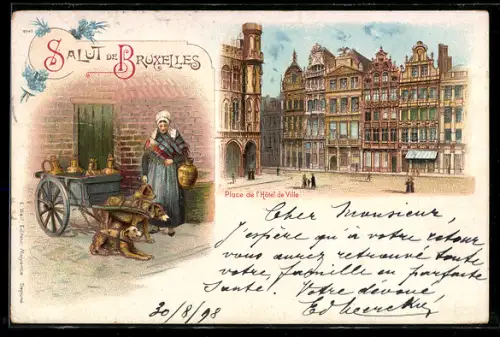 SALUT DE BRUXELLES
Place de l'Hôtel de Ville
Cher Monsieur,
J'espère qu'à votre retour
vous aurez retrouvé toute
votre famille en parfaite
santé. Votre dévoué
30/8/98